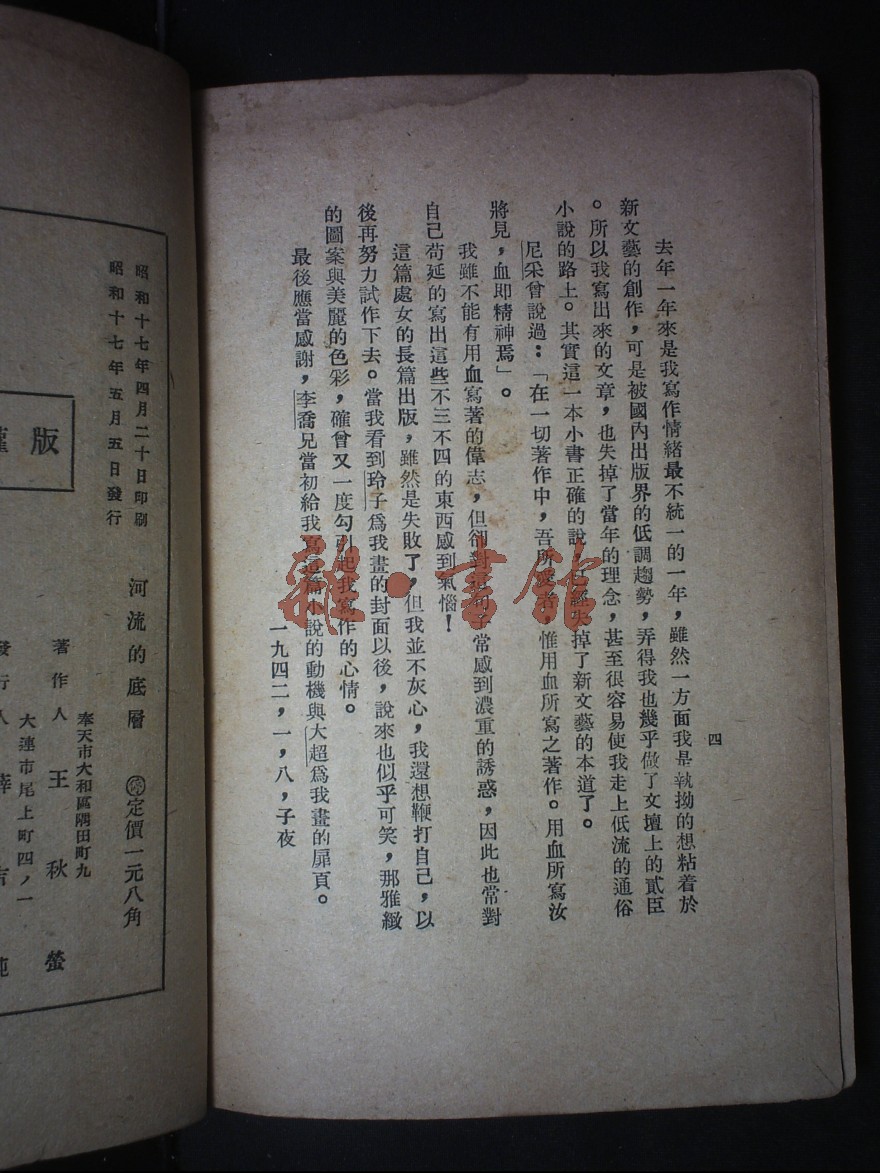 四
去年一年來是我寫作情緒最不統一的一年，雖然一方面我是執拗的想粘着於
新文藝的創作，可是被國內出版界的低調趨勢，弄得我也幾乎做了文壇上的貳臣
。所以我寫出來的文章，也失掉了當年的理念，甚至很容易使我走上低流的通俗
小說的路上。其實這一本小書正確的說，已經失掉了新文藝的本道了。
尼采曾說過：「在一切著作中，吾所愛者，惟用血所寫之著作。用血所寫汝
將見，血即精神焉」。
我雖不能有用血寫著的偉志，但卻對這句子常感到濃重的誘惑，因此也常對
自己苟延的寫出這些不三不四的東西感到氣惱！
這篇處女的長篇出版，雖然是失敗了，但我並不灰心，我還想鞭打自己，以
後再努力試作下去。當我看到玲子爲我畫的封面以後，說來也似乎可笑，那雅緻
的圖案與美麗的色彩，確曾又一度勾引起我寫作的心情。
最後應當感謝，李喬兄當初給我寫這篇小說的動機與大超爲我畫的扉頁。
一九四二，一，八，子夜
昭和十七年四月二十日印刷
昭和十七年五月五日發行
版
河流的底層
定價一元八角
奉天市大和區隅田町九
著作人 王秋螢
大連市尾上町四ノ一
發行人
雜·書館